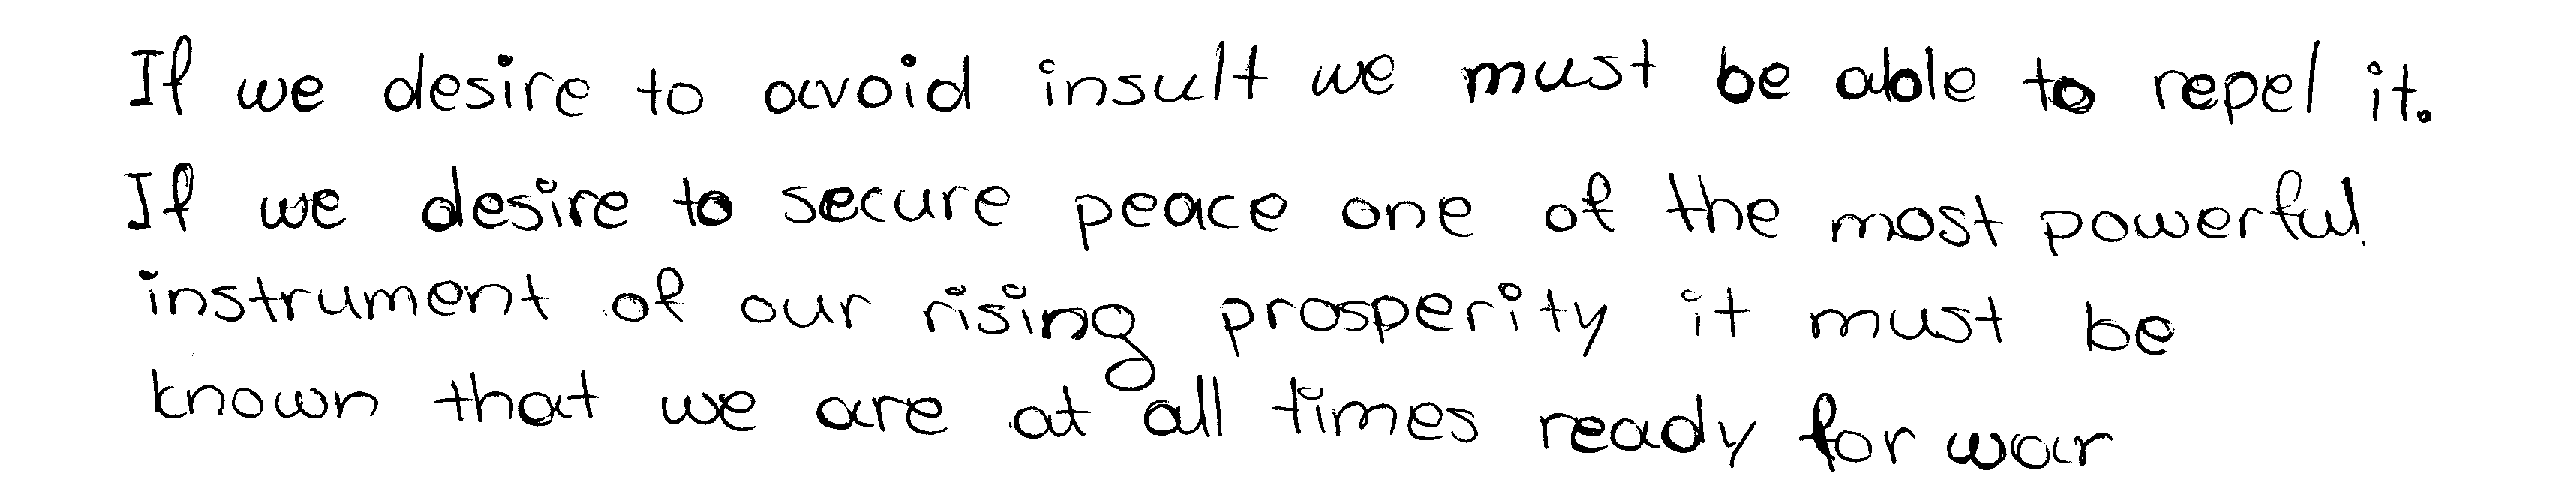 If we desire to avoid insult we must be able to repel it.
If we desire to secure peace one of the most powerful
instrument of our rising prosperity it must be
known that we are at all times ready for war